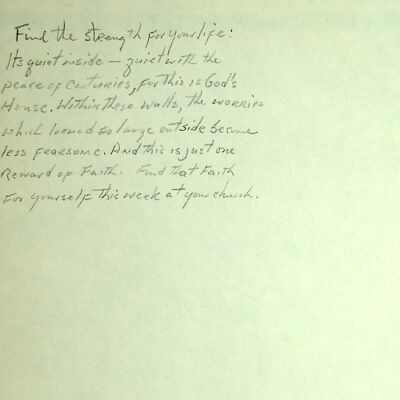 Find the strength for your life:
Its quiet inside — quiet with the
peace of centuries, for this is God's
House. Within these walls, the worries
which loomed so large outside become
less fearsome. And this is just one
Reward of Faith. Find that Faith
For yourself this week at your church.